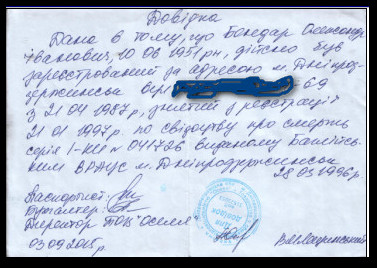 Довідка
Дана в тому, що Бондар Олександр
Іванович, 10 06 1951 рн, дійсно був
зареєстрований за адресою м. Дніпрод-
зержинськ вул. 69
з 21 04 1987р, знятий з реєстрації
21 01 1997р. по свідоцтву про смерть
серія І-КИ № 041726 виданому
ким ВРАЦС м. Дніпродзержинськ
28 03 1996р
Паспортист:
Бухгалтер:
Директор ТОВ "Оселя"
03.09.2015р.